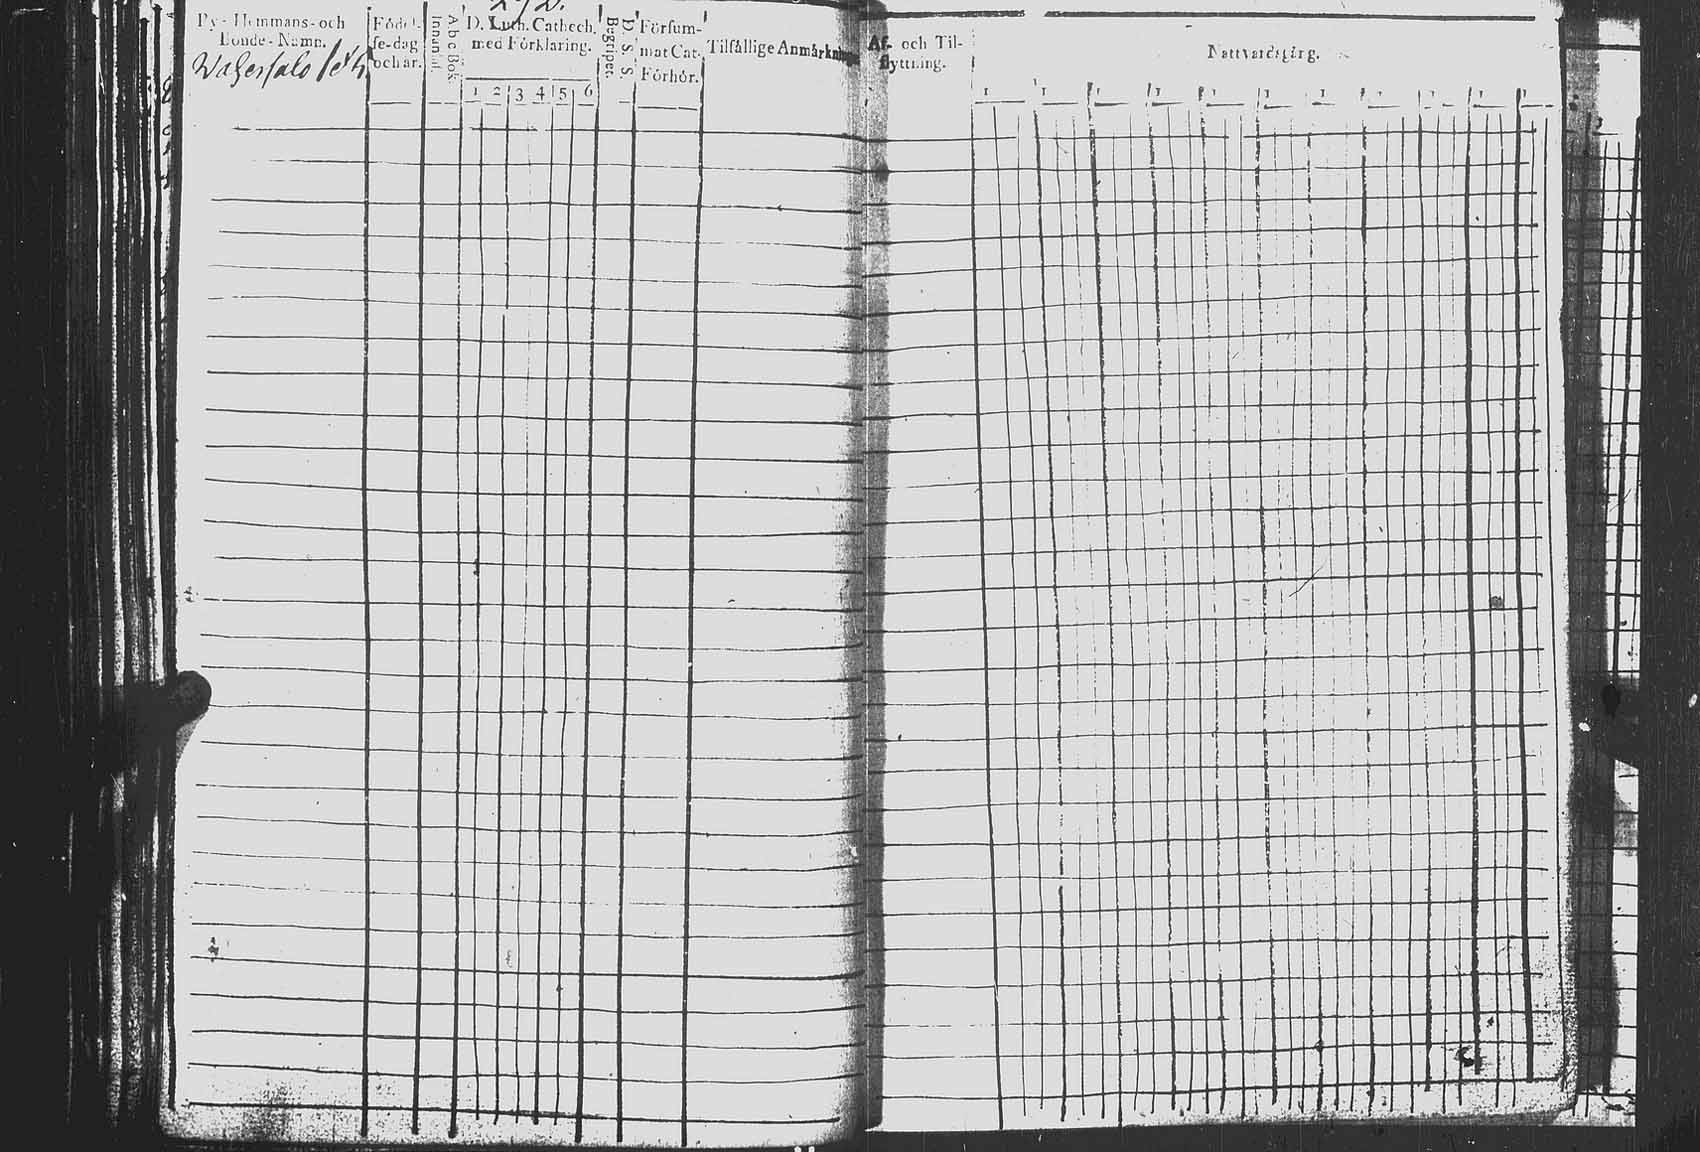 By- Hemmans- och
Bonde- Namn.
Födel-
se-dag
och år.
Abc Bok.
Innantil.
D. Luth. Cathech.
med Förklaring.
1 2 3 4 5 6
D. S. S.
Begripet.
Försum-
mat Cat.
Förhör.
Tilfällige Anmärkningar
Af- och Til-
flyttning.
Nattvardsgång.
1 1 1 1 1 1 1 1 1 1 1